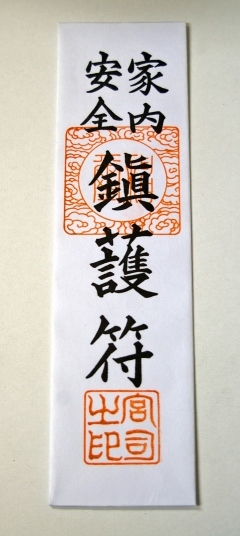 家内
安全
鎮護符
宮司
之印